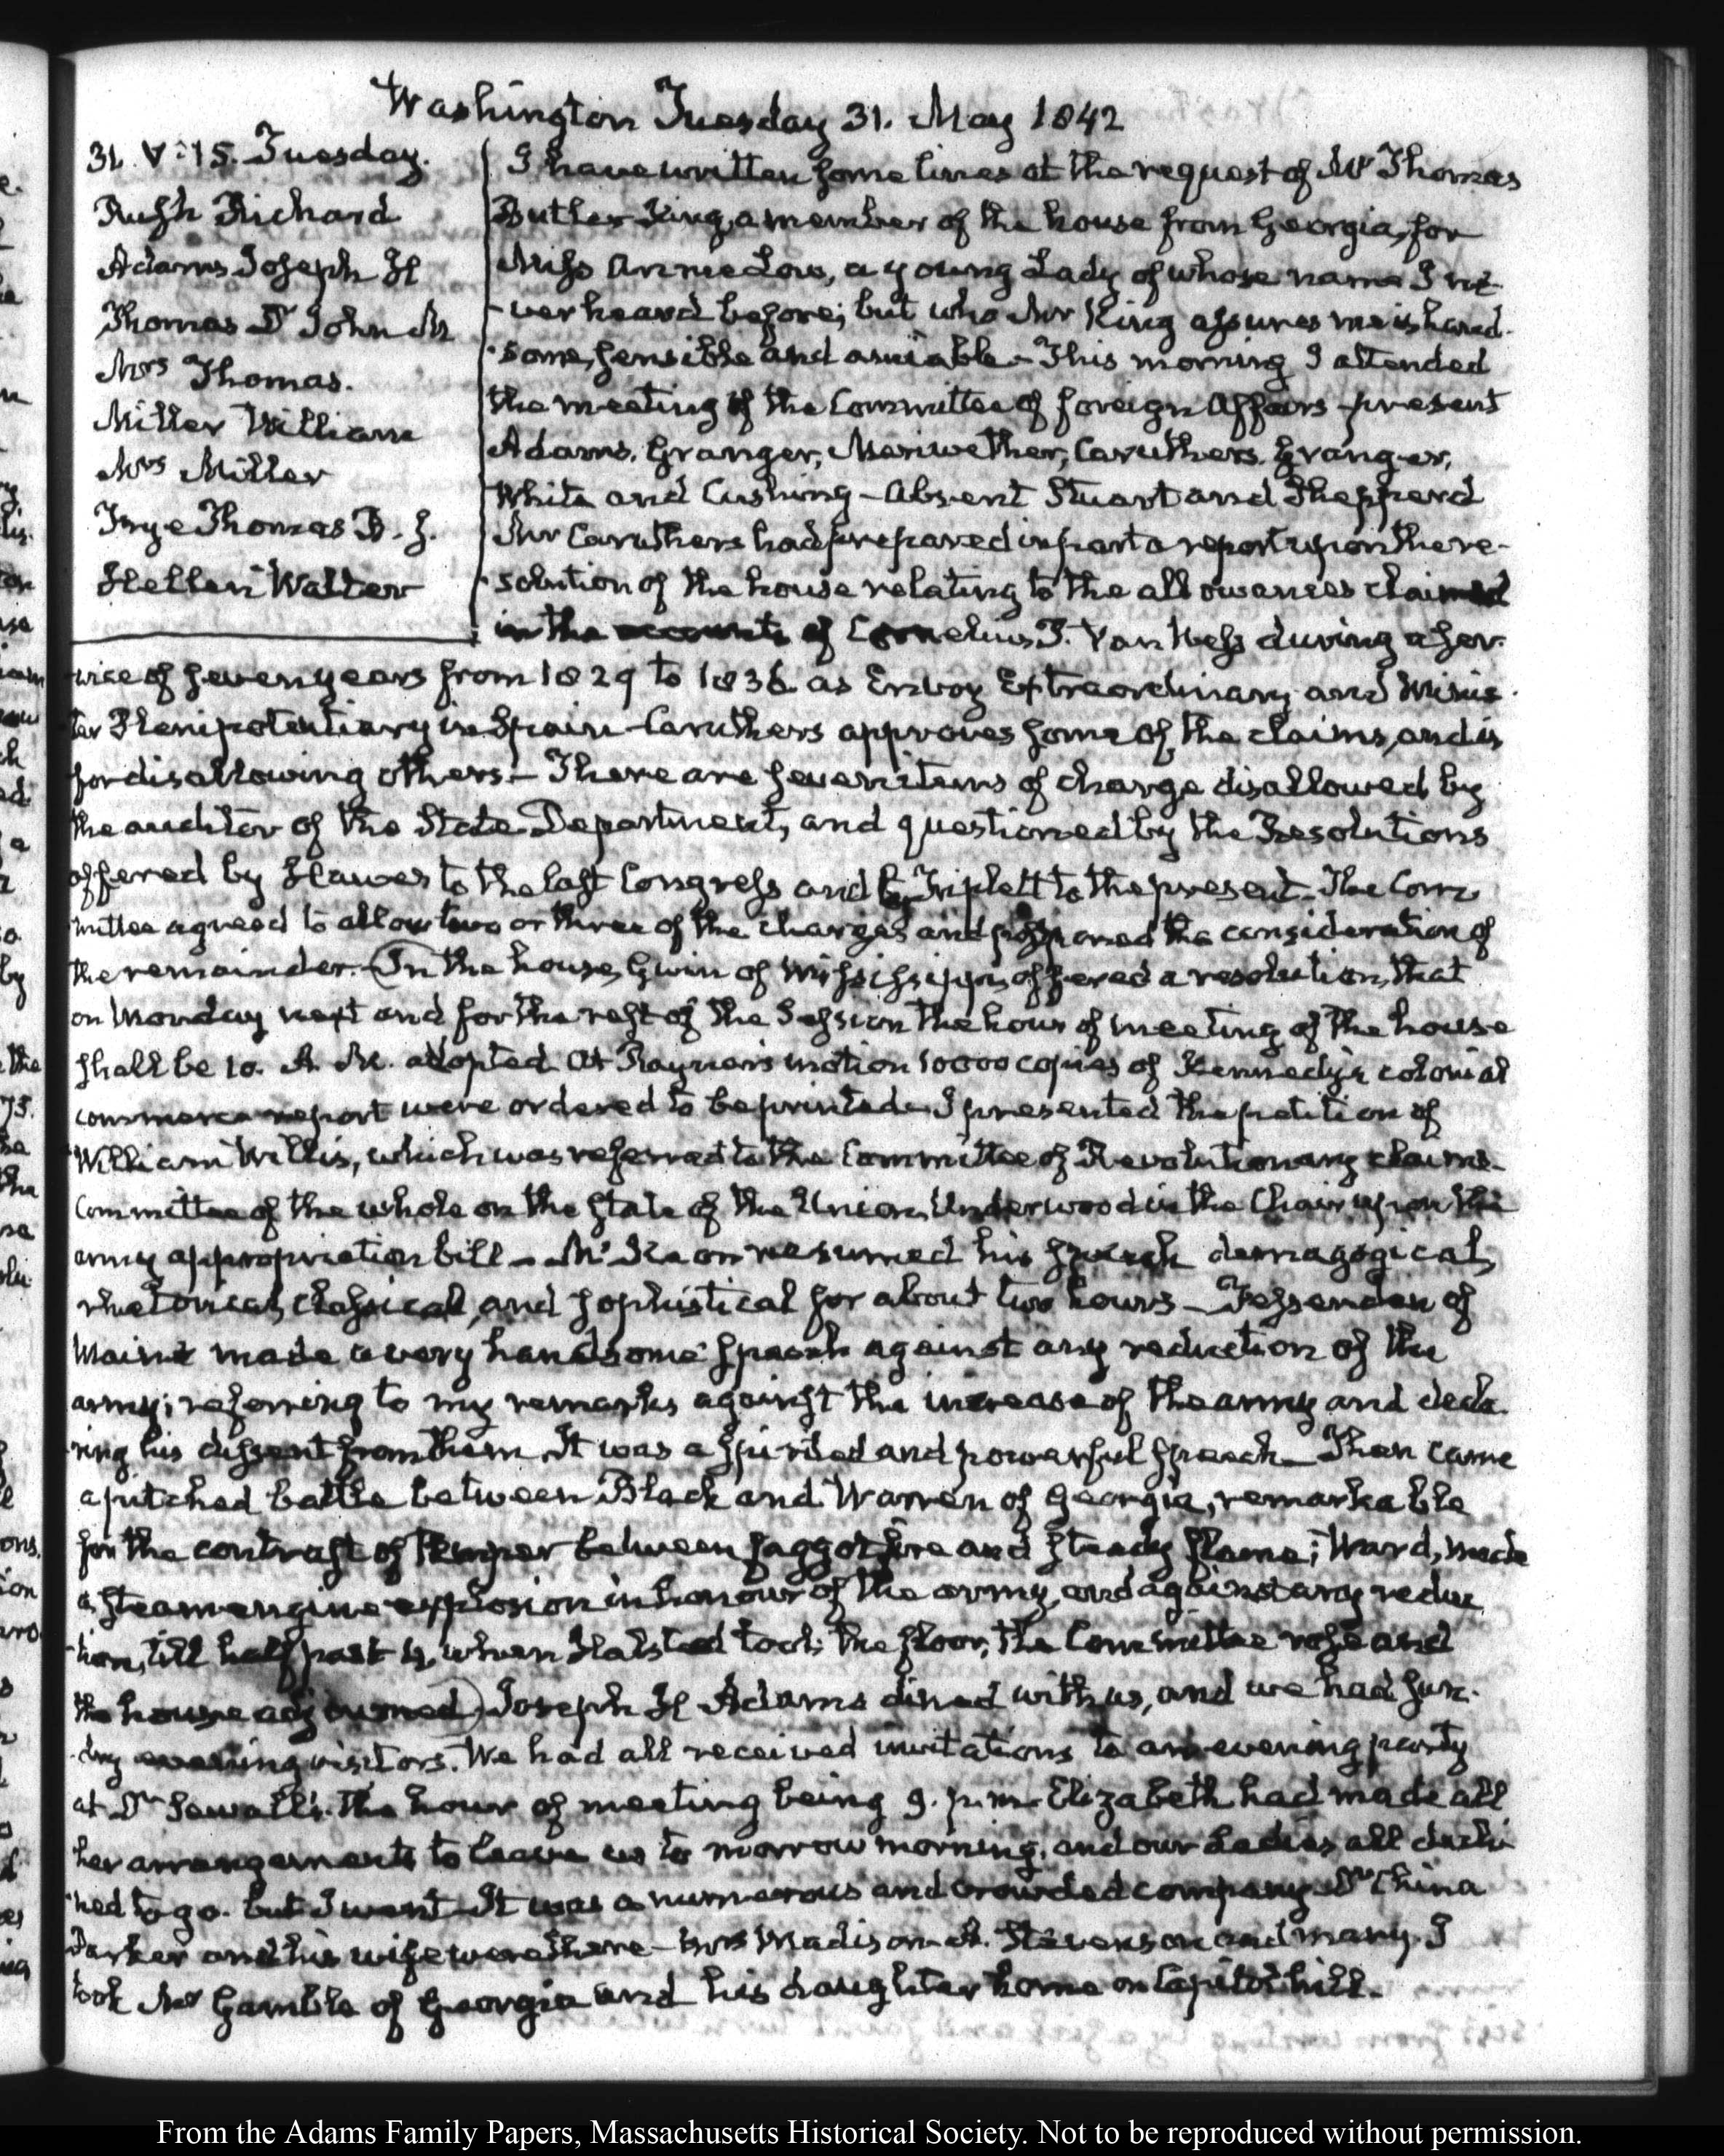 Washington Tuesday 31. May 1842
31. V:15. Tuesday.
Rush Richard
Adams Joseph H
Thomas Dr John M
Mrs Thomas.
Miller William
Mrs Miller
Frye Thomas B. J.
Hellen Walter
I have written some lines at the request of Mr Thomas
Butler King, a member of the house from Georgia, for
Miss Annie Low, a young Lady of whose name I ne-
-ver heard before; but who Mr King assures me is hand-
-some, sensible and amiable – This morning I attended
the meeting of the Committee of foreign Affairs – present
Adams, Granger, Meriwether, Caruthers, Granger,
White and Cushing – Absent Stuart and Shepperd
Mr Caruthers had prepared in part a report upon the re-
-solution of the house relating to the allowances claimed
in the accounts of Cornelius P. Van Ness during a ser-
-vice of seven years from 1829 to 1836 as Envoy Extraordinary and Minis-
ter Plenipotentiary in Spain – Caruthers approves some of the claims, and is
for disallowing others – There are seven items of charge disallowed by
the auditor of the State Department, and questioned by the Resolutions
offered by Hawes to the last Congress and by Triplett to the present – The Com-
mittee agreed to allow two or three of the charges and postponed the consideration of
the remainder. (In the house, Gwin of Mississippi, offered a resolution, that
on Monday next and for the rest of the Session the hour of meeting of the house
shall be 10. A. M. adopted. At Rayner's motion 10000 copies of Kennedy's colonial
commerce report were ordered to be printed. I presented the petition of
William Willis, which was referred to the Committee of Revolutionary claims –
Committee of the whole on the state of the Union, Underwood in the Chair upon the
army appropriation bill – McKeon resumed his speech demagogical,
rhetorical, classical, and sophistical for about two hours – Fessenden of
Maine made a very handsome speech against any reduction of the
army; referring to my remarks against the increase of the army and decla-
-ring his dissent from them. It was a spirited and powerful speech – Then came
a pitched battle between Black and Warren of Georgia, remarkable
for the contrast of temper between faggot fire and steady flame; Ward, made
a steam engine explosion in honour of the army, and against any reduc
-tion, till half past 4, when Halsted took the floor, the Committee rose and
the house adjourned) Joseph H Adams dined with us, and we had sun-
-dry evening visitors. We had all received invitations to an evening party
at Dr Sewall's. the hour of meeting being 9. p.m. Elizabeth had made all
her arrangements to leave us to morrow morning, and our Ladies all decli-
-ned to go. but I went – It was a numerous and crowded company – Dr
Parker and his wife were there – Mrs Madison – A. Stevenson and many. I
took Mr Gamble of Georgia and his daughter home on Capitol hill.
From the Adams Family Papers, Massachusetts Historical Society. Not to be reproduced without permission.